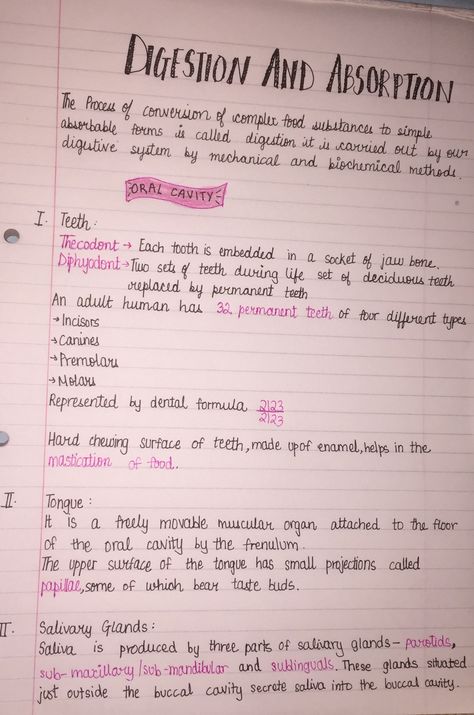 DIGESTION AND ABSORPTION
The Process of conversion of complex food substances to simple
absorbable forms is called digestion it is carried out by our
digestive system by mechanical and biochemical methods.
ORAL CAVITY
I. Teeth:
Thecodont → Each tooth is embedded in a socket of jaw bone.
Diphyodont → Two sets of teeth during life set of deciduous teeth
replaced by permanent teeth
An adult human has 32 permanent teeth of four different types
→ Incisors
→ Canines
→ Premolars
→ Molars
Represented by dental formula 2123
2123
Hard chewing surface of teeth, made upof enamel, helps in the
mastication of food.
II. Tongue:
It is a freely movable muscular organ attached to the floor
of the oral cavity by the frenulum.
The upper surface of the tongue has small projections called
papillae, some of which bear taste buds.
II. Salivary Glands:
Saliva is produced by three parts of salivary glands- parotids,
sub-maxillary/sub-mandibular and sublinguals. These glands situated
just outside the buccal cavity secrete saliva into the buccal cavity.